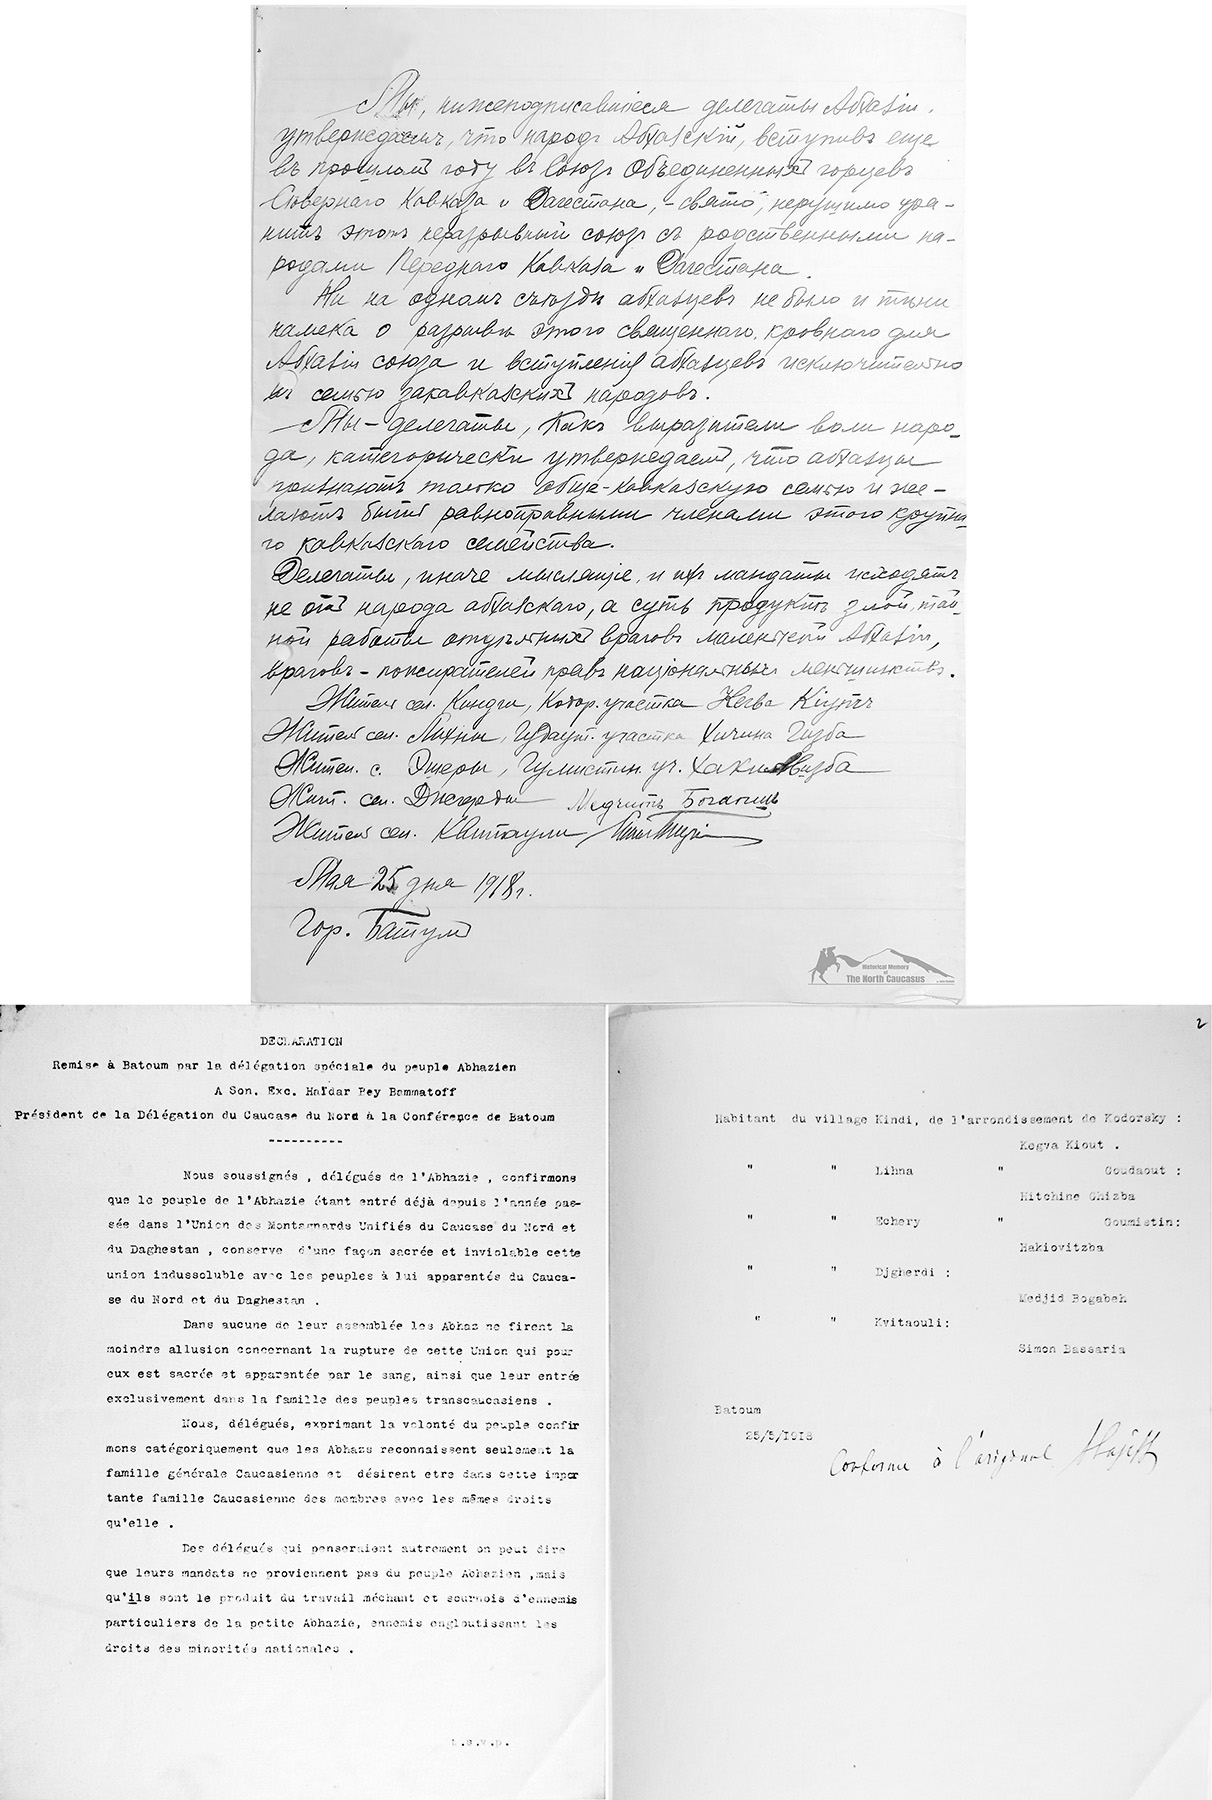 Мы, нижеподписавшiеся делегаты Абхазiи,
утверждаемъ, что народъ Абхазскiй, вступивъ еще
въ прошломъ году въ Союзъ Объединенныхъ горцевъ
Сѣвернаго Кавказа и Дагестана, - свято, нерушимо хра-
нитъ этотъ неразрывный союзъ съ родственными на-
родами Передняго Кавказа и Дагестана.
Ни на одномъ съѣздѣ абхазцевъ не было и тѣни
намека о разрывѣ этого священнаго, кровнаго для
Абхазiи союза и вступленiя абхазцевъ исключительно
въ семью закавказскихъ народовъ.
Мы - делегаты, какъ выразители воли наро-
да, категорически утверждаемъ, что абхазцы
признаютъ только обще-кавказскую семью и же-
лаютъ быть равноправными членами этого крупна-
го кавказскаго семейства.
Делегаты, иначе мыслящiе, и ихъ мандаты исходятъ
не отъ народа абхазскаго, а суть продуктъ злой, тай-
ной работы отдѣльныхъ враговъ маленькой Абхазiи,
враговъ - пожирателей правъ нацiональныхъ меньшинствъ.
Житель сел. Киндги, Кодор. участка Кегва Кiутъ
Житель сел. Лихны, Гудаут. участка Хичина Гизба
Жител. с. Эшеры, Гумистин. уч. Хаки Авизба
Жит. сел. Джгерды Меджитъ Богабшъ
Житель сел. Квитаули
Мая 25 дня 1918 г.
Гор. Батумъ
Historical Memory
of
The North Caucasus
DECLARATION
Remise à Batoum par la délégation spéciale du peuple Abhazien
A Son. Exc. Haïdar Bey Bammatoff
Président de la Délégation du Caucase du Nord à la Conférence de Batoum
----------
Nous soussignés , délégués de l'Abhazie , confirmons
que le peuple de l'Abhazie étant entré déjà depuis l'année pas-
sée dans l'Union des Montagnards Unifiés du Caucase du Nord et
du Daghestan , conserve d'une façon sacrée et inviolable cette
union indussoluble avec les peuples à lui apparentés du Cauca-
se du Nord et du Daghestan .
Dans aucune de leur assemblée les Abhaz ne firent la
moindre allusion concernant la rupture de cette Union qui pour
eux est sacrée et apparentée par le sang, ainsi que leur entrée
exclusivement dans la famille des peuples transcaucasiens .
Nous, délégués, exprimant la volonté du peuple confir
mons catégoriquement que les Abhazs reconnaissent seulement la
famille générale Caucasienne et désirent etre dans cette impor
tante famille Caucasienne des membres avec les mêmes droits
qu'elle .
Des délégués qui penseraient autrement on peut dire
que leurs mandats ne proviennent pas du peuple Abhazien ,mais
qu'ils sont le produit du travail méchant et sournois d'ennemis
particuliers de la petite Abhazie, ennemis engloutissant les
droits des minorités nationales .
2
Habitant du village Kindi, de l'arrondissement de Kodorsky :
Kegva Kiout .
" " Lihna " Goudaout :
Hitchine Ghizba
" " Echery " Goumistin:
Hakiovitzba
" " Djgherdi :
Medjid Bogabeh
" " Kvitaouli:
Simon Bassaria
Batoum
25/5/1918
Conforme à l'original